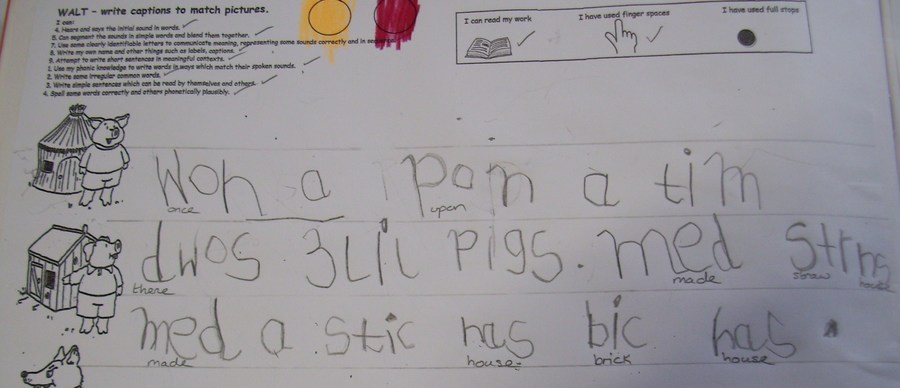 WALT - write captions to match pictures.
I can:
4. Hears and says the initial sound in words.
5. Can segment the sounds in simple words and blend them together.
7. Use some clearly identifiable letters to communicate meaning, representing some sounds correctly and in
8. Write my own name and other things such as labels, captions.
9. Attempt to write short sentences in meaningful contexts.
1. Use my phonic knowledge to write words in ways which match their spoken sounds.
2. Write some irregular common words.
3. Write simple sentences which can be read by themselves and others.
4. Spell some words correctly and others phonetically plausibly.
I can read my work
I have used finger spaces
I have used full stops
Won a pon a tim
once upon
dwos 3 Lil pigs. med
there made straw house
med a stic has bic has
made house brick house